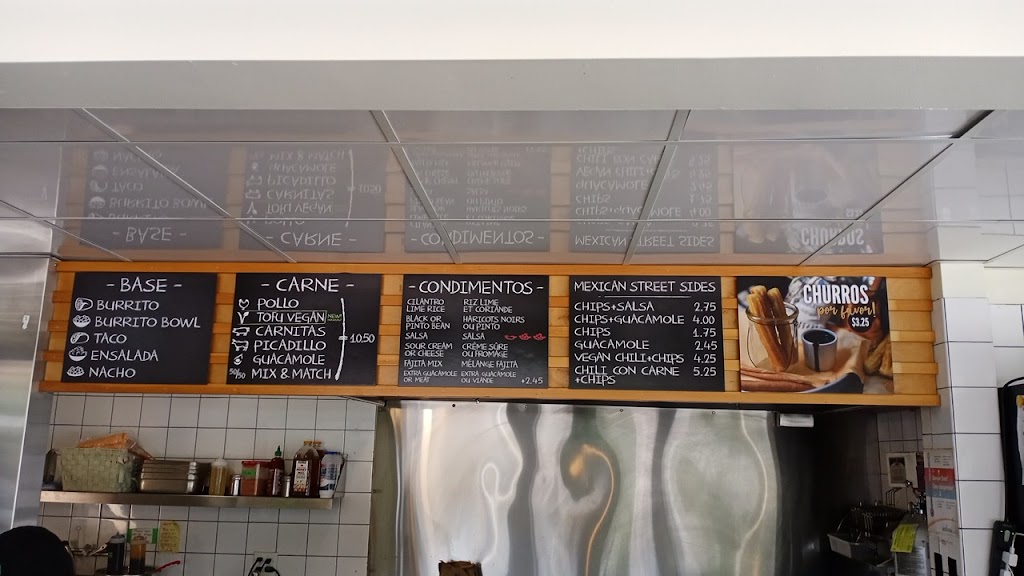 - BASE -
BURRITO
BURRITO BOWL
TACO
ENSALADA
NACHO
- CARNE -
POLLO
TOFU VEGAN NEW!
CARNITAS
PICADILLO
GUACAMOLE
50/50 MIX & MATCH
10.50
- CONDIMENTOS -
CILANTRO
LIME RICE
BLACK OR
PINTO BEAN
SALSA
SOUR CREAM
OR CHEESE
FAJITA MIX
EXTRA GUACAMOLE
OR MEAT
RIZ LIME
ET CORIANDE
HARICOTS NOIRS
OU PINTO
SALSA
CRÈME SÛRE
OU FROMAGE
MÉLANGE FAJITA
EXTRA GUACAMOLE
OU VIANDE +2.45
MEXICAN STREET SIDES
CHIPS+SALSA 2.75
CHIPS+GUACAMOLE 4.00
CHIPS 1.75
GUACAMOLE 2.45
VEGAN CHILI+CHIPS 4.25
CHILI CON CARNE 5.25
+CHIPS
CHURROS
por favor!
$3.25